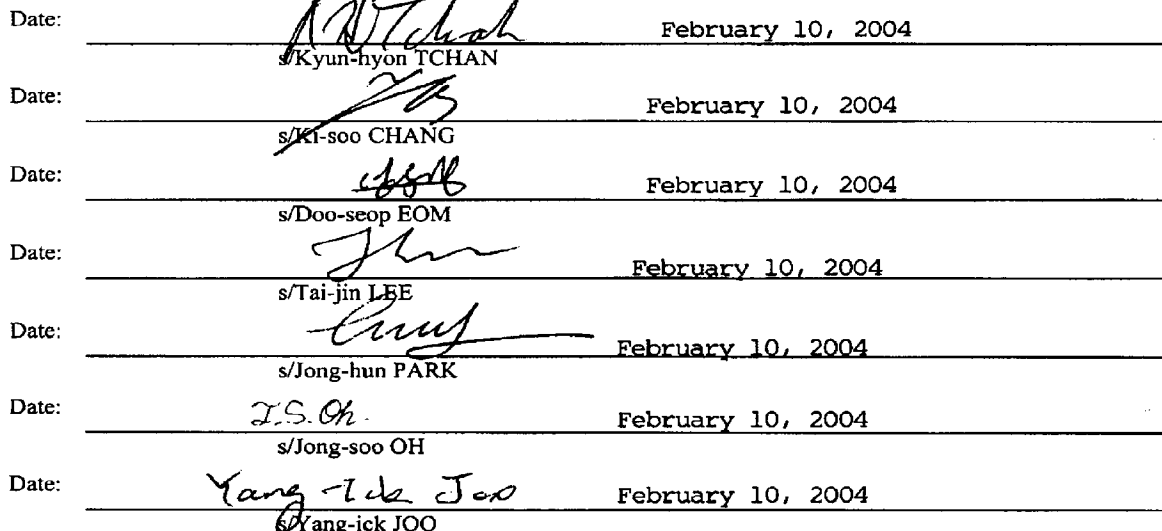 Date: K H Tchah February 10, 2004
s/Kyun-hyon TCHAN
Date: February 10, 2004
s/Ki-soo CHANG
Date: February 10, 2004
s/Doo-seop EOM
Date: February 10, 2004
s/Tai-jin LEE
Date: February 10, 2004
s/Jong-hun PARK
Date: J.S. Oh. February 10, 2004
s/Jong-soo OH
Date: Yang-Ick Joo February 10, 2004
s/Yang-ick JOO